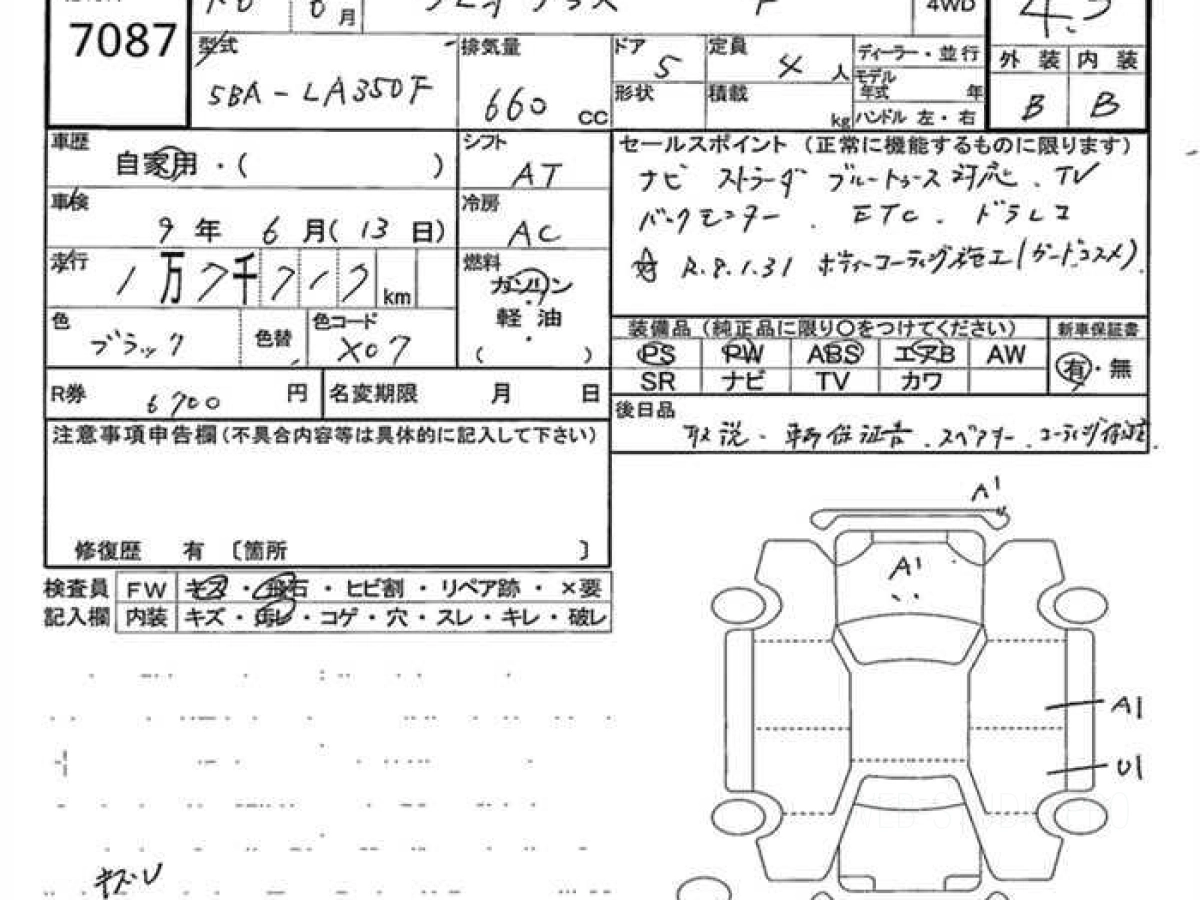 7087
6月
4WD
型式
5BA-LA350F
排気量
660 cc
ドア
5
定員
4 人
ディーラー・並行
モデル年式 年
形状
積載 kg
ハンドル 左・右
外装 内装
B B
車歴
自家用・( )
シフト
AT
車検
9年 6月(13日)
冷房
AC
走行
1万7千717km
燃料
ガソリン
・
軽油
・
( )
色
ブラック
色替
色コード
X07
R券
6700円
名変期限 月 日
セールスポイント(正常に機能するものに限ります)
ナビ ストラーダ ブルートゥース対応、TV
バックモニター、ETC、ドラレコ
R.8.1.31 ボディーコーティング施工(ガードコスメ)
装備品(純正品に限り○をつけてください)
PS PW ABS エアB AW
SR ナビ TV カワ
新車保証書
有・無
後日品
取説、車両保証書、スペアキー、コーティング保証
注意事項申告欄(不具合内容等は具体的に記入して下さい)
修復歴 有 〔箇所 〕
検査員記入欄
FW キズ・飛石・ヒビ割・リペア跡・×要
内装 キズ・汚レ・コゲ・穴・スレ・キレ・破レ
A1
A1
A1
U1